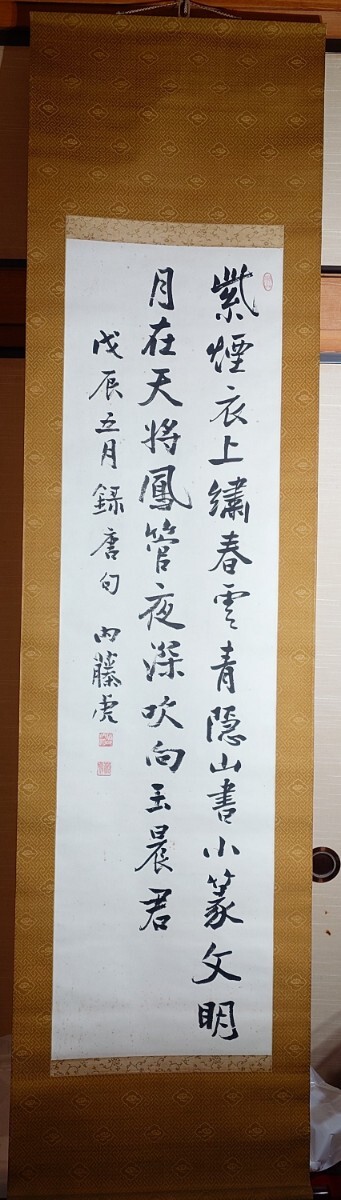 紫煙衣上繡春雲青隠山書小篆文明
月在天将鳳管夜深吹向玉晨君
戊辰五月録唐句 内藤虎